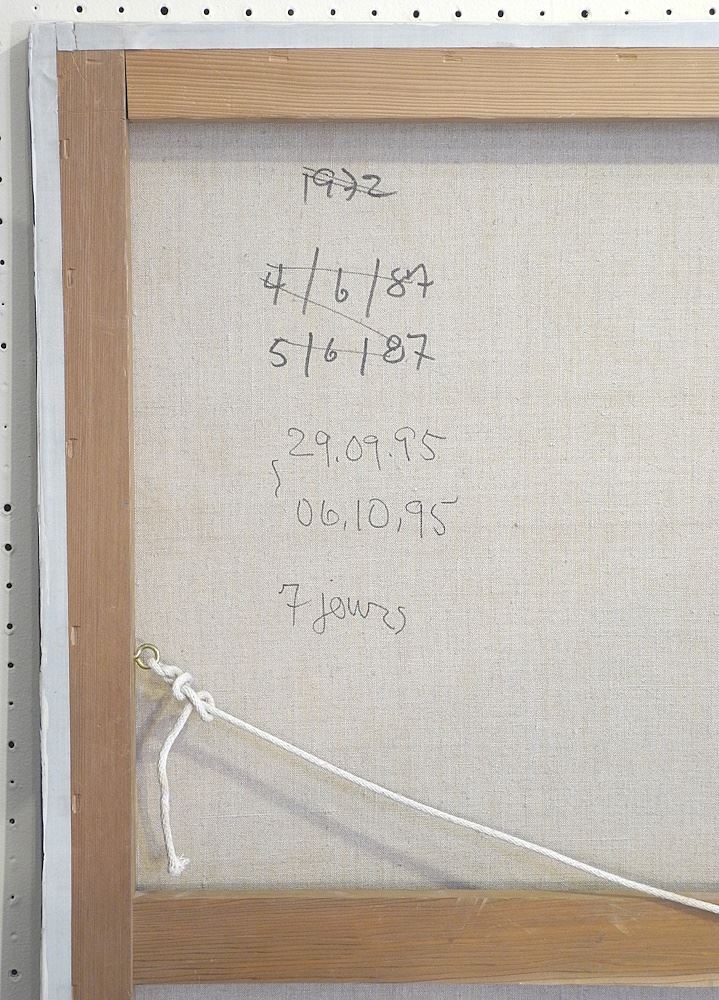 1932
4/6/87
5/6/87
29.09.95
06.10.95
7 jours